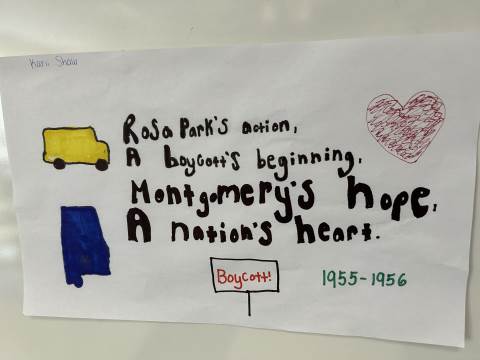 Karii Shaw
Rosa Park's action,
A boycott's beginning,
Montgomery's hope,
A nation's heart.
Boycott!
1955-1956